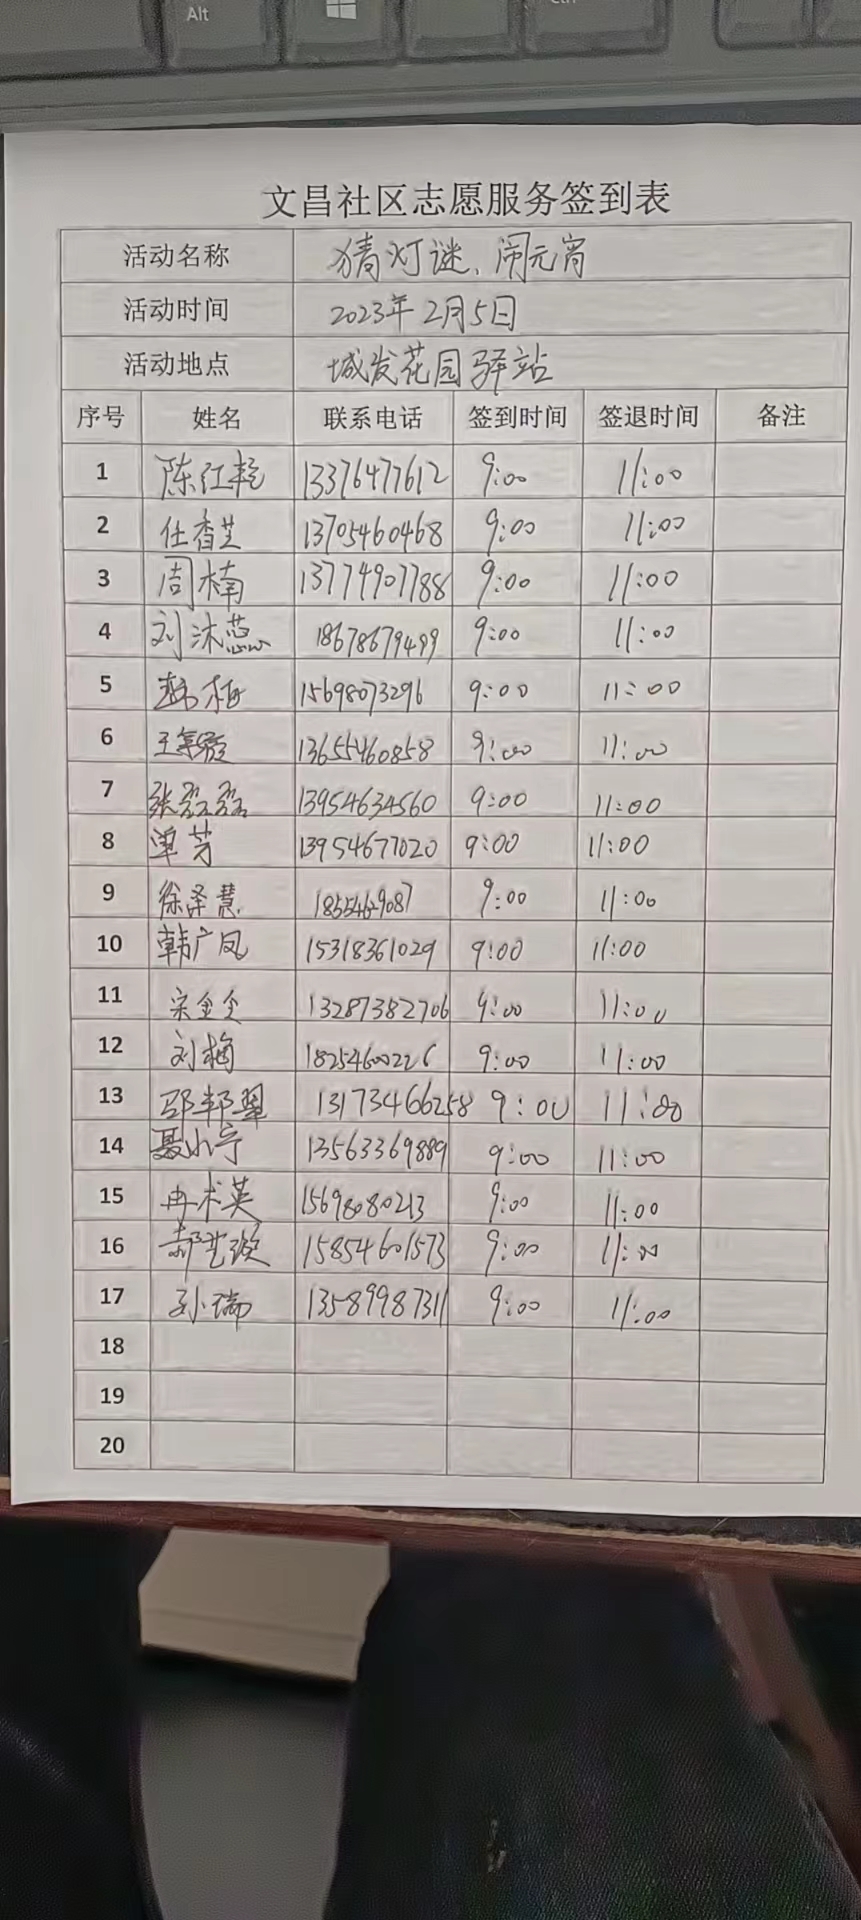 Alt
文昌社区志愿服务签到表
活动名称 猜灯谜、闹元宵
活动时间 2023年2月5日
活动地点 城发花园驿站
序号 姓名 联系电话 签到时间 签退时间 备注
1 陈红乾 13376477612 9:00 11:00
2 任香芝 13705460468 9:00 11:00
3 周楠 13774907788 9:00 11:00
4 刘沐蕊 18678679499 9:00 11:00
5 韩梅 15698073296 9:00 11:00
6 王 13655460858 9:00 11:00
7 张磊磊 13954634560 9:00 11:00
8 单芳 13954677020 9:00 11:00
9 徐泽慧 9:00 11:00
10 韩广凤 15318361029 9:00 11:00
11 宋金全 13287382706 9:00 11:00
12 刘梅 18254600226 9:00 11:00
13 邵邦翠 13173466258 9:00 11:00
14 聂小宁 13563369889 9:00 11:00
15 冉术英 15698080213 9:00 11:00
16 郝艺璇 15854601573 9:00 11:00
17 孙瑞 13589987311 9:00 11:00
18
19
20